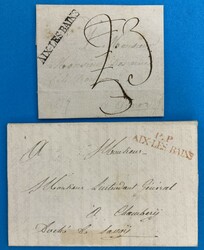 AIX-LES-BAINS
23
P.P.
AIX-LES-BAINS
A Monsieur
Monsieur Lieutenant Général
à Chambéry
Duché de Savoie